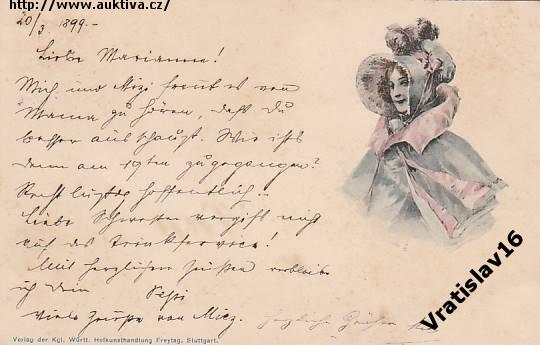 http://www.auktiva.cz/
20/3. 1899.-
Liebe Marianne!
Mich und Mizi freut es von
Mama zu hören, daß Du
besser ausschaust. Wie ists
denn am 19ten zugegangen?
Recht lustig hoffentlich.-
Liebe Schwester vergiß nicht
auf das Trinkservice!
Mit herzlichen Grüßen verbleibe
ich Dein
Viele Grüße von Miez.
Herzliche Grüße
Vratislav16
Verlag der Kgl. Württ. Hofkunsthandlung Freytag, Stuttgart.